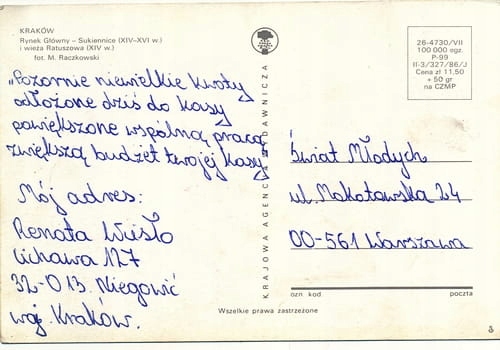 KRAKÓW
Rynek Główny – Sukiennice (XIV–XVI w.)
i wieża Ratuszowa (XIV w.)
fot. M. Raczkowski
„Pozornie niewielkie kwoty
odłożone dziś do kasy
powiększone wspólną pracą
zwiększą budżet twojej kasy"
Mój adres:
Renata Wisło
Cichawa 127
32-013 Niegowić
woj. Kraków.
KRAJOWA AGENCJA WYDAWNICZA
26-4730/VII
100 000 egz.
P-99
II-3/327/86/J
Cena zł 11,50
+ 50 gr
na CZMP
Świat Młodych
ul. Mokotowska 24
00-561 Warszawa
ozn. kod. poczta
Wszelkie prawa zastrzeżone